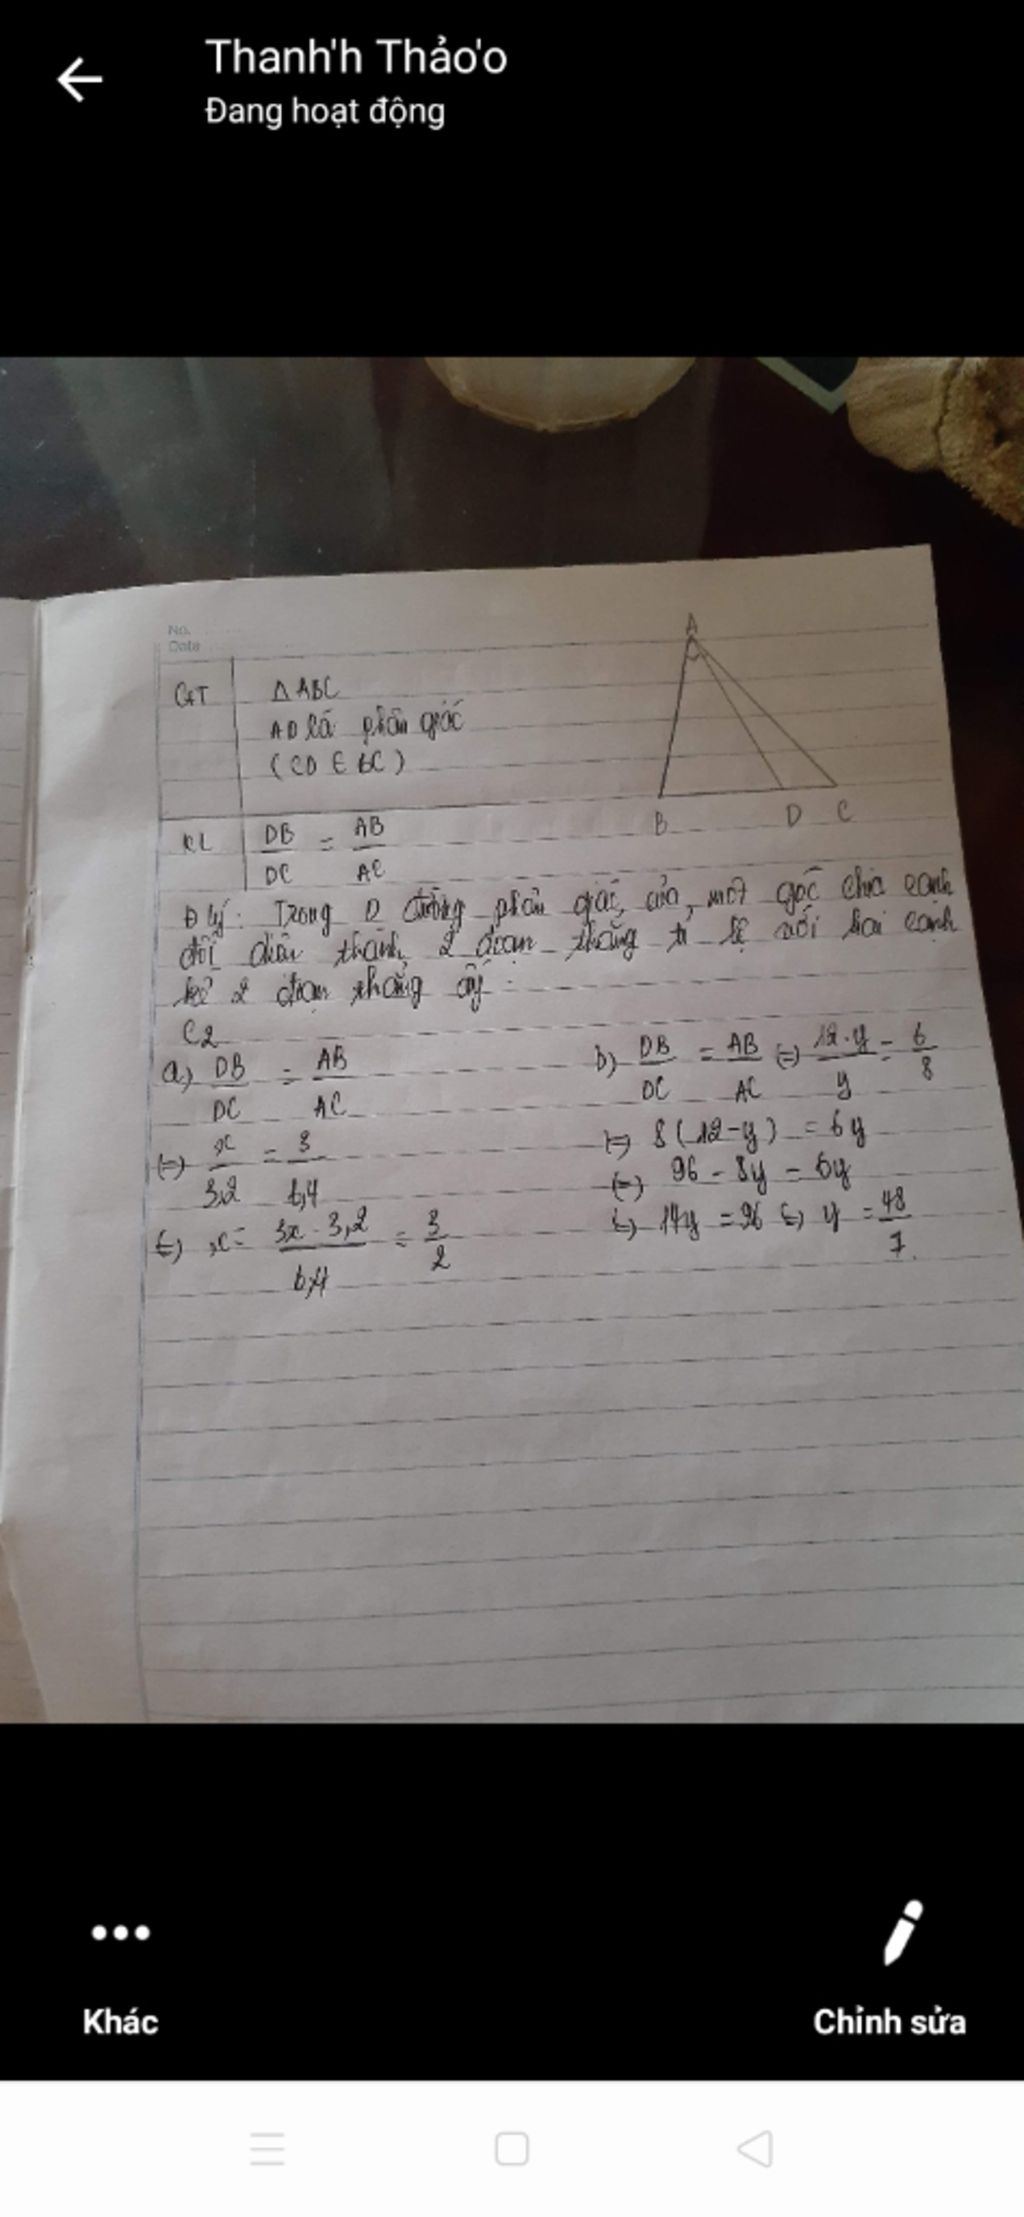 Thanh'h Thảo'o
Đang hoạt động
No.
Date
A
GT
Δ ABC
AD là phân giác
(CD ∈ BC)
B D C
KL
DB/DC = AB/AC
Đ lý: Trong Δ đường phân giác của một góc chia cạnh
đối diện thành 2 đoạn thẳng tỉ lệ với hai cạnh
kề 2 đoạn thẳng ấy.
C2
a) DB/DC = AB/AC
(=) x/3,2 = 3/6,4
(=) x = 3x.3,2/6,4 = 3/2
b) DB/DC = AB/AC (=) 12-y/y = 6/8
(=) 8(12-y) = 6y
(=) 96 - 8y = 6y
(=) 14y = 96 (=) y = 48/7.
Khác
Chỉnh sửa